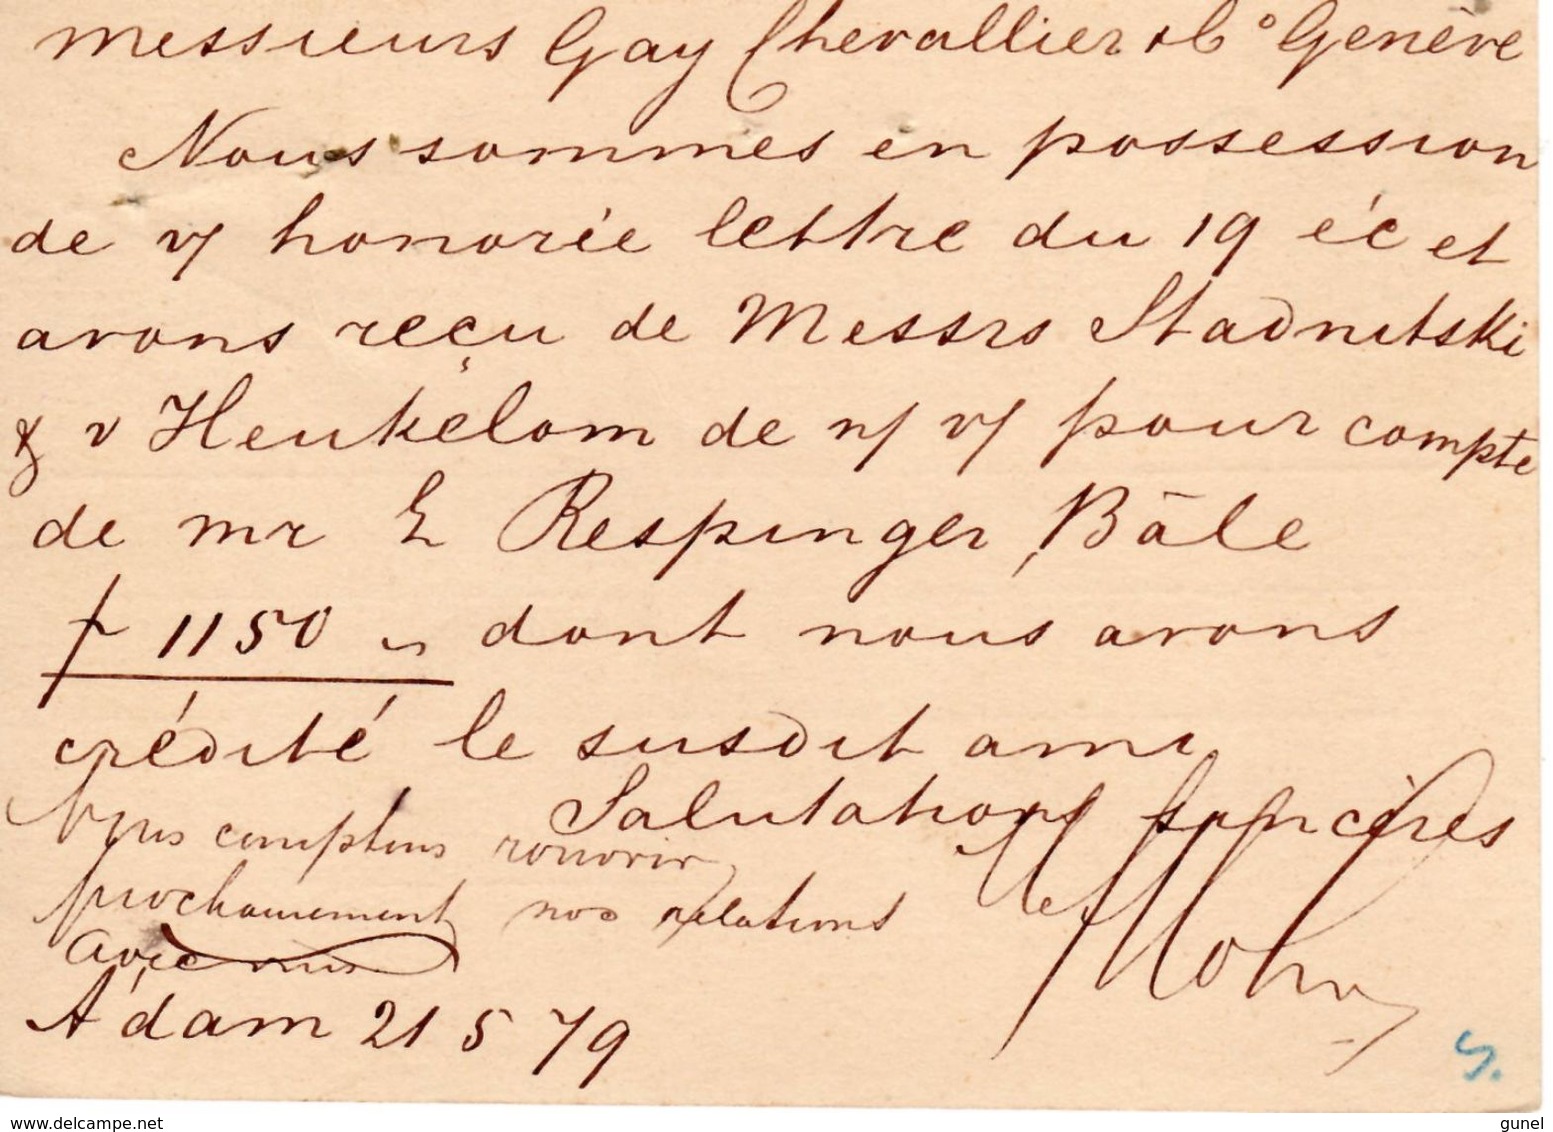 Messieurs Gay Chevallier & Cº Genève
Nous sommes en possession
de v/ honorée lettre du 19 éc et
avons reçu de Messrs Stadnitski
& v Heukelom de n/ v/ pour compte
de mr E Respinger, Bâle
f 1150 " dont nous avons
crédité le susdit ami
Salutations sincères
Nous comptons rouvrir
prochainement nos relations
avec
A'dam 21 5 79
S.
delcampe.net
gunel